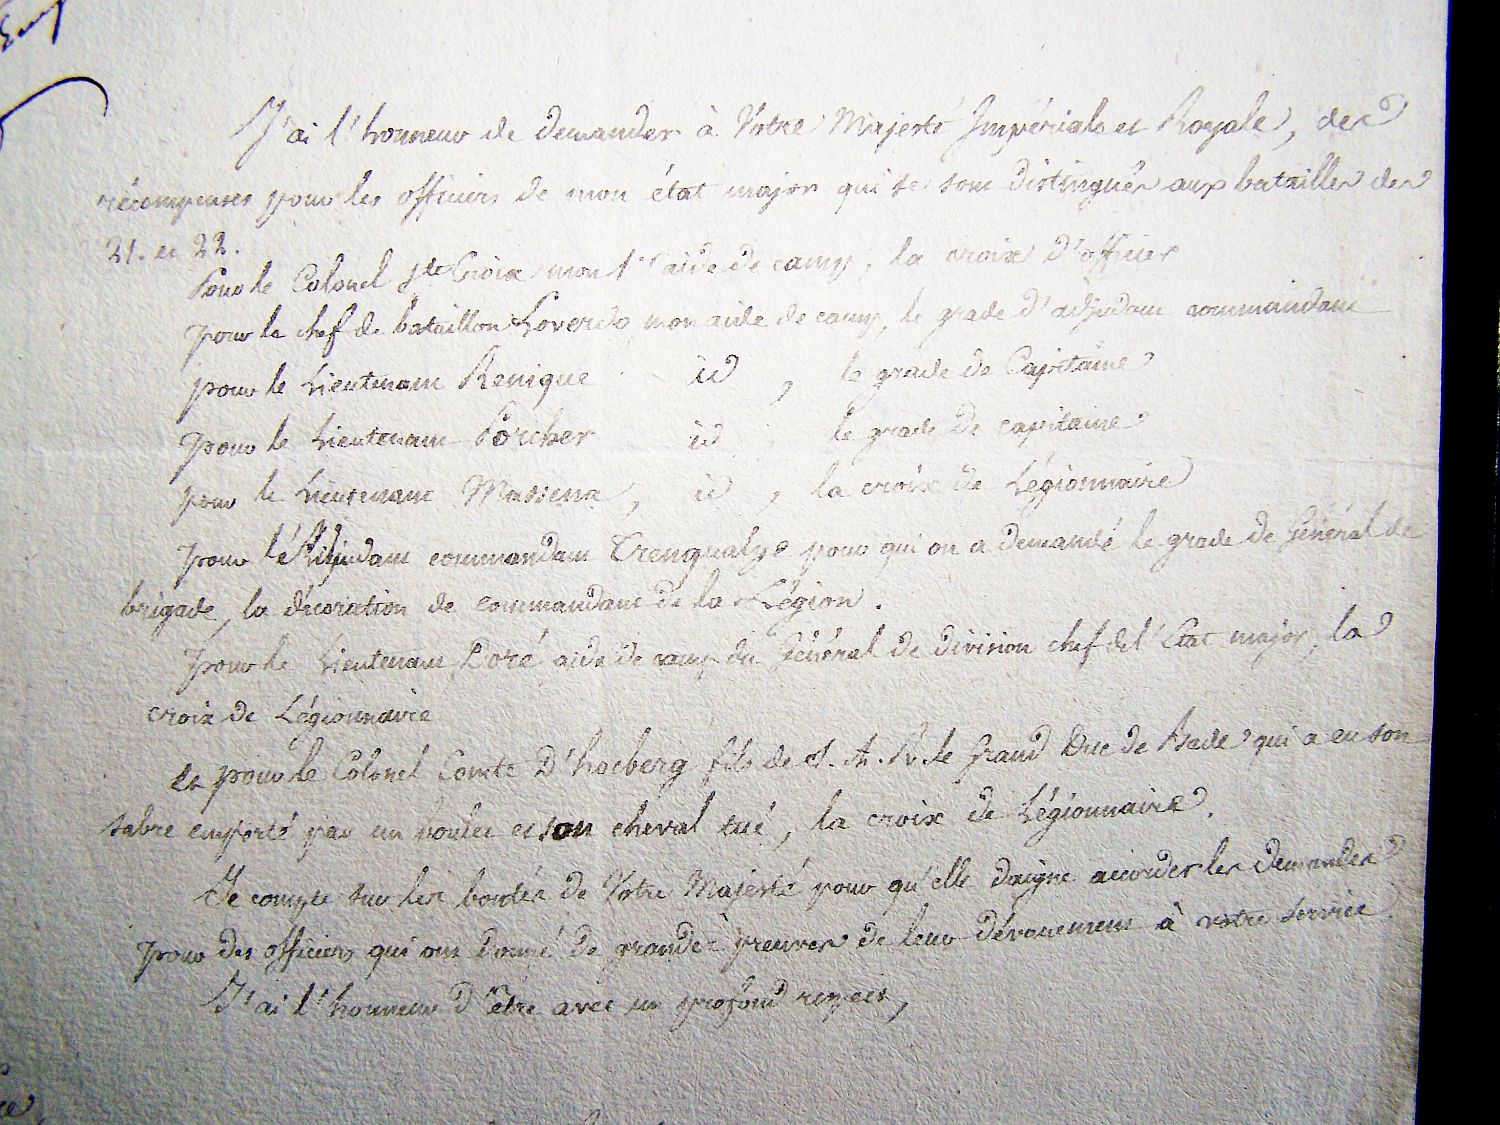 J'ai l'honneur de demander à Votre Majesté Impériale et Royale, des
récompenses pour les officiers de mon état major qui se sont distingués aux batailles des
21. et 22.
Pour le Colonel Ste Croix mon 1er aide de camp, la croix d'officier
pour le chef de bataillon Loverdo mon aide de camp, le grade d'adjudant commandant
pour le Lieutenant Renique id, le grade de Capitaine
pour le Lieutenant Porcher id, le grade de capitaine
pour le Lieutenant Massena, id, la croix de Légionnaire
pour l'Adjudant commandant Trenqualye pour qui on a demandé le grade de Général de
brigade, la décoration de commandant de la Légion.
pour le Lieutenant Doré aide de camp du Général de division chef de l'Etat major, la
croix de Légionnaire
et pour le Colonel Comte D'hocberg fils de S. A. R. le Grand Duc de Bade qui a eu son
sabre emporté par un boulet et son cheval tué, la croix de Légionnaire.
Je compte sur les bontés de Votre Majesté pour qu'elle daigne accorder les demandes
pour des officiers qui ont donné de grandes preuves de leur dévouement à votre service.
J'ai l'honneur d'être avec un profond respect,